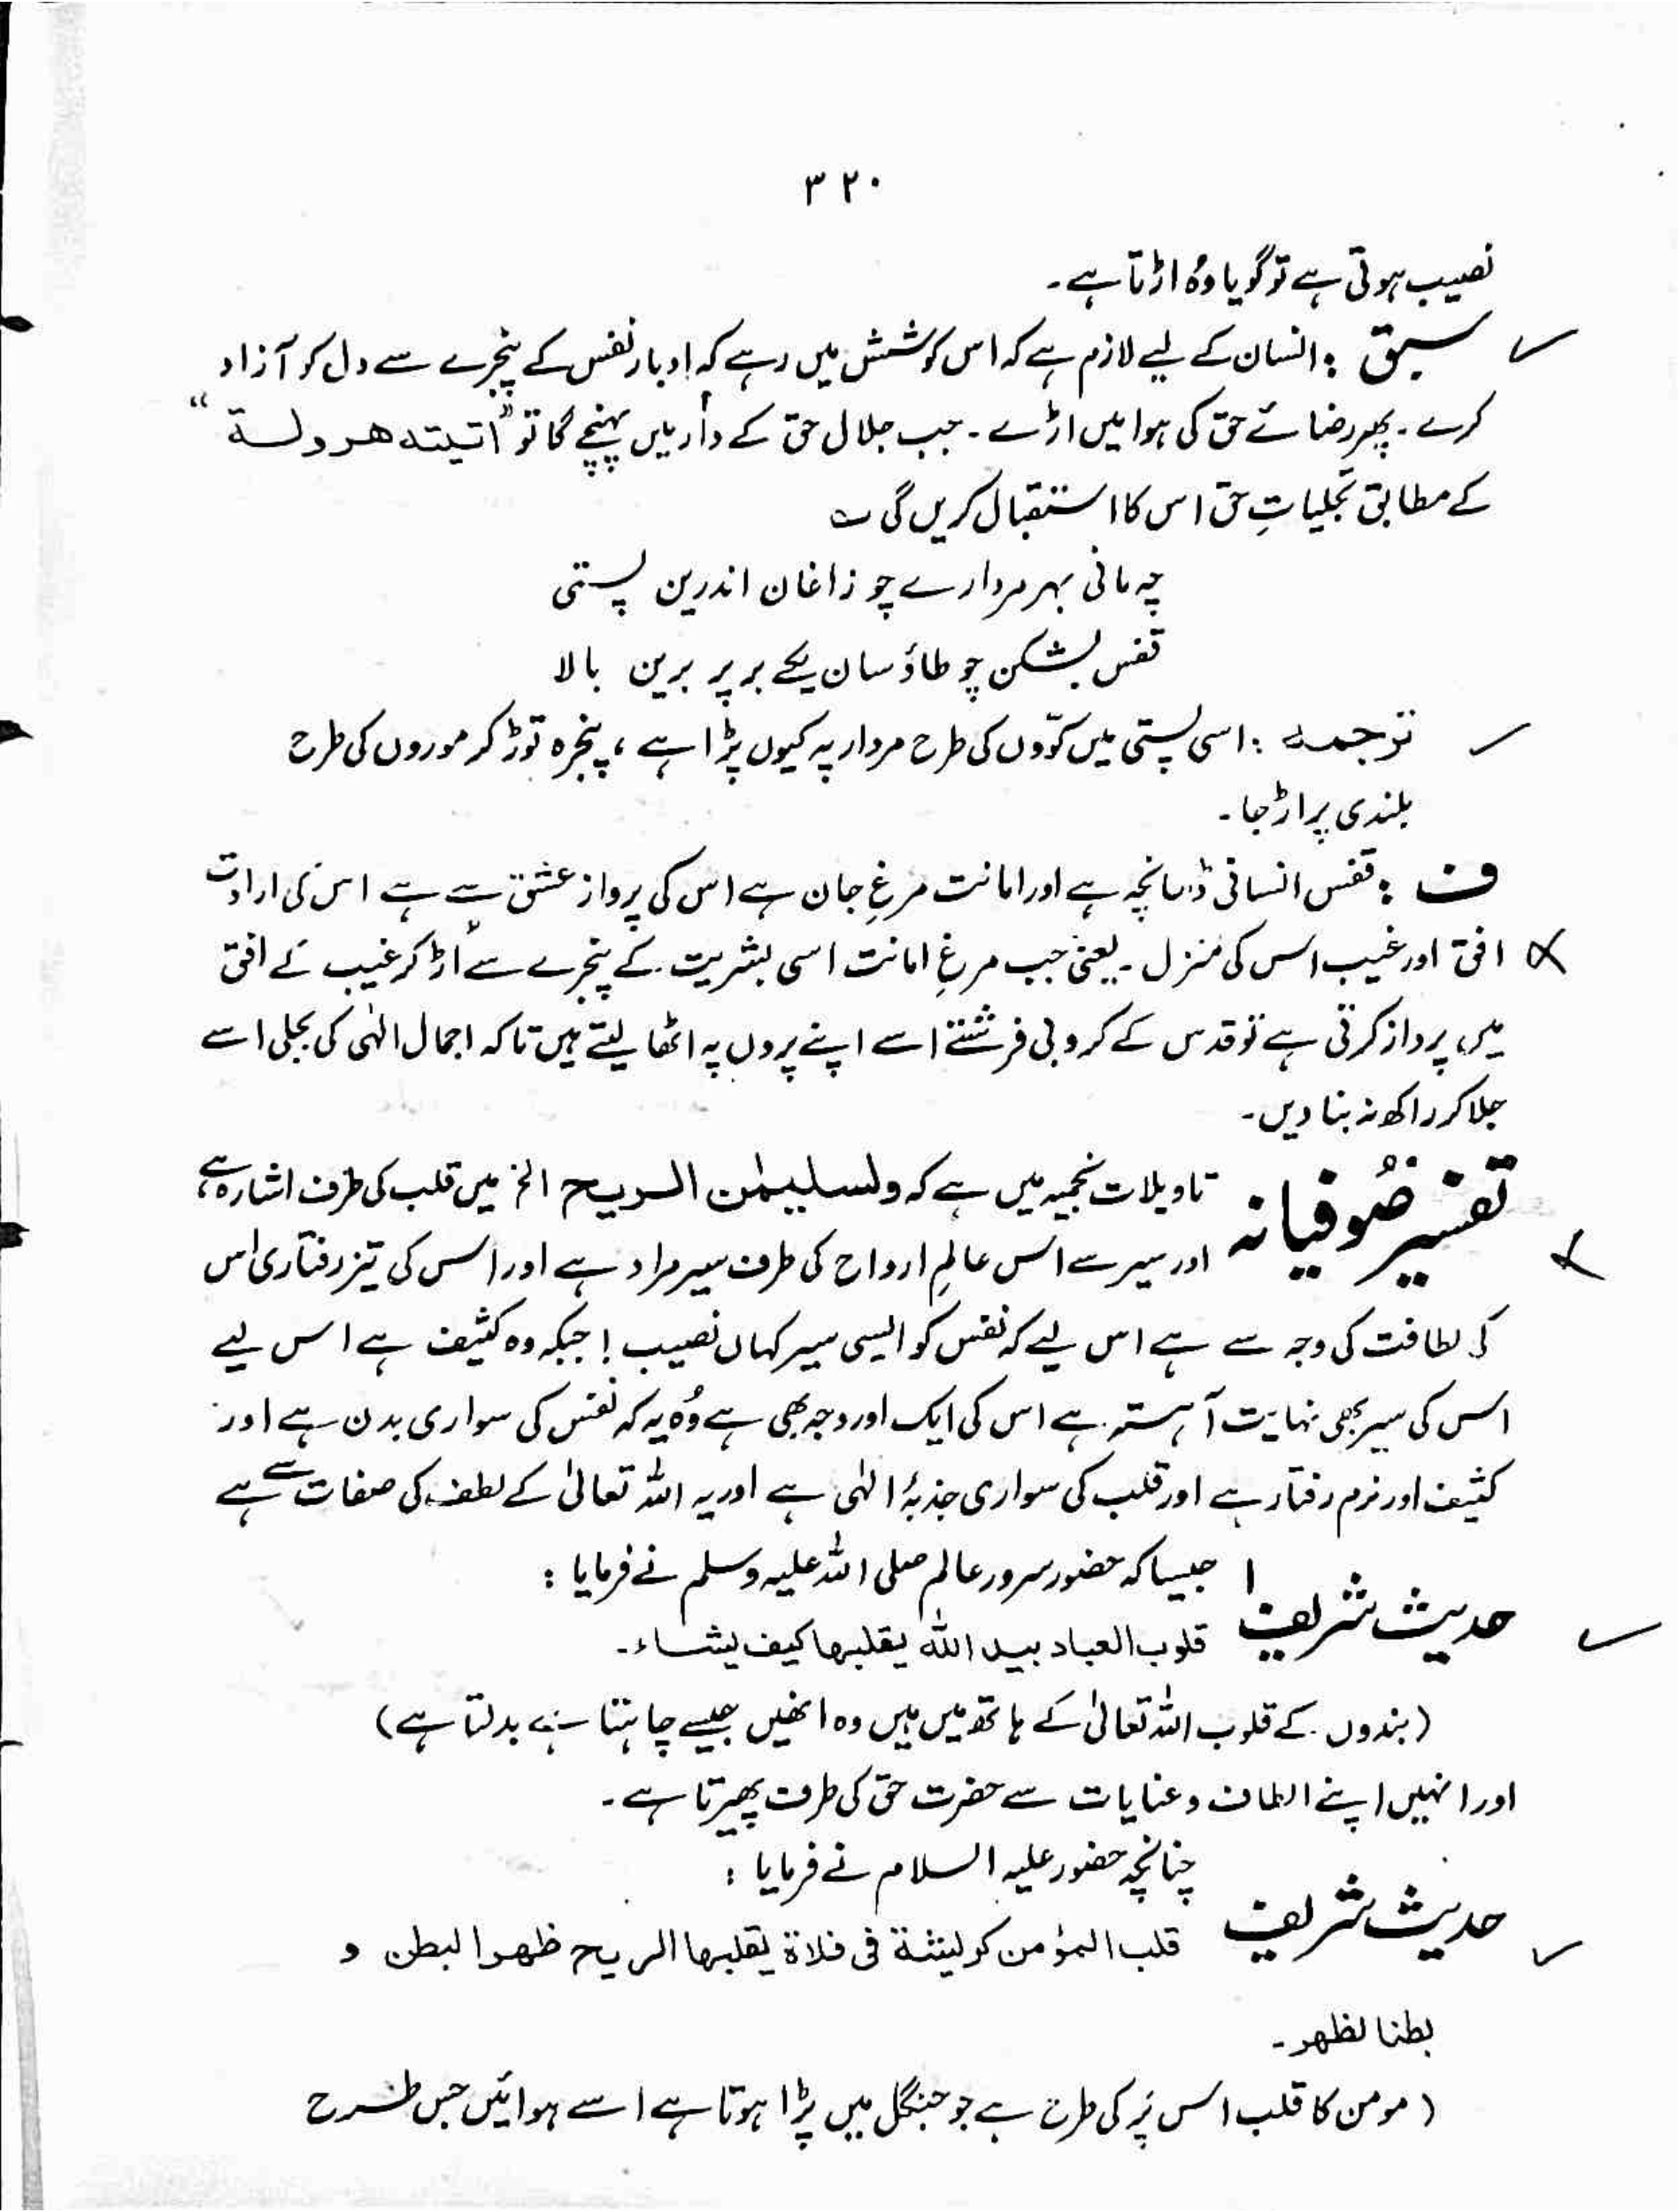 ۳۲۰
نصیب ہوتی ہے تو گویا وہ اڑتا ہے۔
سبق : انسان کے لیے لازم ہے کہ اس کوشش میں رہے کہ ادبار نفس کے پنجرے سے دل کو آزاد
کرے۔ پھر رضائے حق کی ہوا میں اڑے۔ جب جلال حق کے دار میں پہنچے گا تو "اتیتہ ھرولۃ"
کے مطابق تجلیاتِ حق اس کا استقبال کریں گی ؎
چہ مانی بہر مردارے چو زاغان اندرین پستی
قفس بشکن چو طاؤسان یکے بر پر برین بالا
ترجمہ : اسی پستی میں کوّوں کی طرح مردار پہ کیوں پڑا ہے ، پنجرہ توڑ کر موروں کی طرح
بلندی پر اڑ جا۔
ف : قفس انسانی ڈھانچہ ہے اور امانت مرغِ جان ہے اس کی پرواز عشق سے ہے اس کی ارادت
افق اور غیب اس کی منزل۔ یعنی جب مرغِ امانت اسی بشریت کے پنجرے سے اُڑ کر غیب کے افق
میں پرواز کرتی ہے تو قدس کے کروبی فرشتے اسے اپنے پروں پہ اٹھا لیتے ہیں تاکہ اجمال الٰہی کی بجلی اسے
جلا کر راکھ نہ بنا دیں۔
تفسیر صُوفیانہ تاویلات نجمیہ میں ہے کہ ولسلیمٰن الریح الخ میں قلب کی طرف اشارہ ہے،
اور سیر سے اس عالمِ ارواح کی طرف سیر مراد ہے اور اس کی تیز رفتاری اس
کی لطافت کی وجہ سے ہے اس لیے کہ نفس کو ایسی سیر کہاں نصیب ! جبکہ وہ کثیف ہے اس لیے
اس کی سیر بھی نہایت آہستہ ہے اس کی ایک اور وجہ بھی ہے وُہ یہ کہ نفس کی سواری بدن ہے اور
کثیف اور نرم رفتار ہے اور قلب کی سواری جذبۂ الٰہی ہے اور یہ اللہ تعالیٰ کے لطف کی صفات سے ہے
حدیث شریف ا جیسا کہ حضور سرور عالم صلی اللہ علیہ وسلم نے فرمایا :
قلوب العباد بید اللہ یقلبھا کیف یشاء۔
(بندوں کے قلوب اللہ تعالیٰ کے ہاتھ میں ہیں وہ انھیں جیسے چاہتا ہے بدلتا ہے)
اور انہیں اپنے الطاف و عنایات سے حضرت حق کی طرف پھیرتا ہے۔
چنانچہ حضور علیہ السلام نے فرمایا :
حدیث شریف قلب المؤمن کریشۃ فی فلاۃ یقلبھا الریح ظھرا لبطن و
بطنا لظھر۔
( مومن کا قلب اس پَر کی طرح ہے جو جنگل میں پڑا ہوتا ہے اسے ہوائیں جس طرح